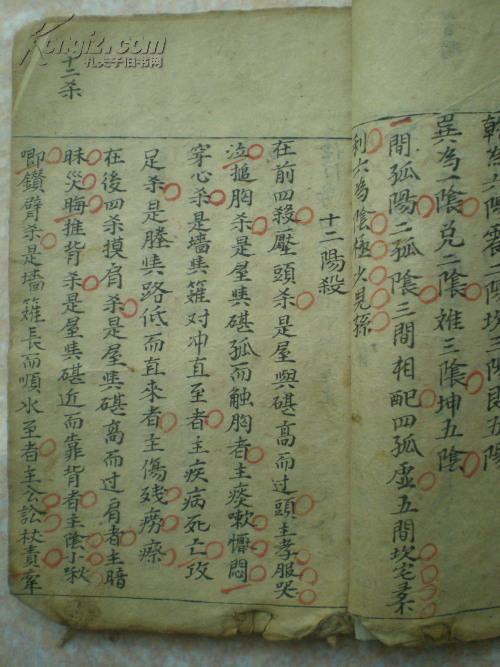 乾為六陽震二陽坎三陽艮五陽
巽為一陰兌二陰離三陰坤五陰
一間孤陽二孤陰三間相配四孤虛五間坎宅柔
利六為陰極少見孫
十二陽殺
在前四殺壓頭杀是屋與碪高而过頭主孝服哭
泣搥胸杀是屋與碪孤而触胸者主痰嗽懵悶
穿心杀是墻與籬对冲直至者主疾病死亡攻
足杀是塍與路低而直來者主傷殘癆瘵
在後四杀摸肩杀是屋與碪高而过肩者主暗
昧災晦推背杀是屋與碪近而靠背者主陰小啾
唧鑽臂杀是墻籬長而順水至者主公訟杖責牢
十二杀
Kongfz.com
孔夫子旧书网